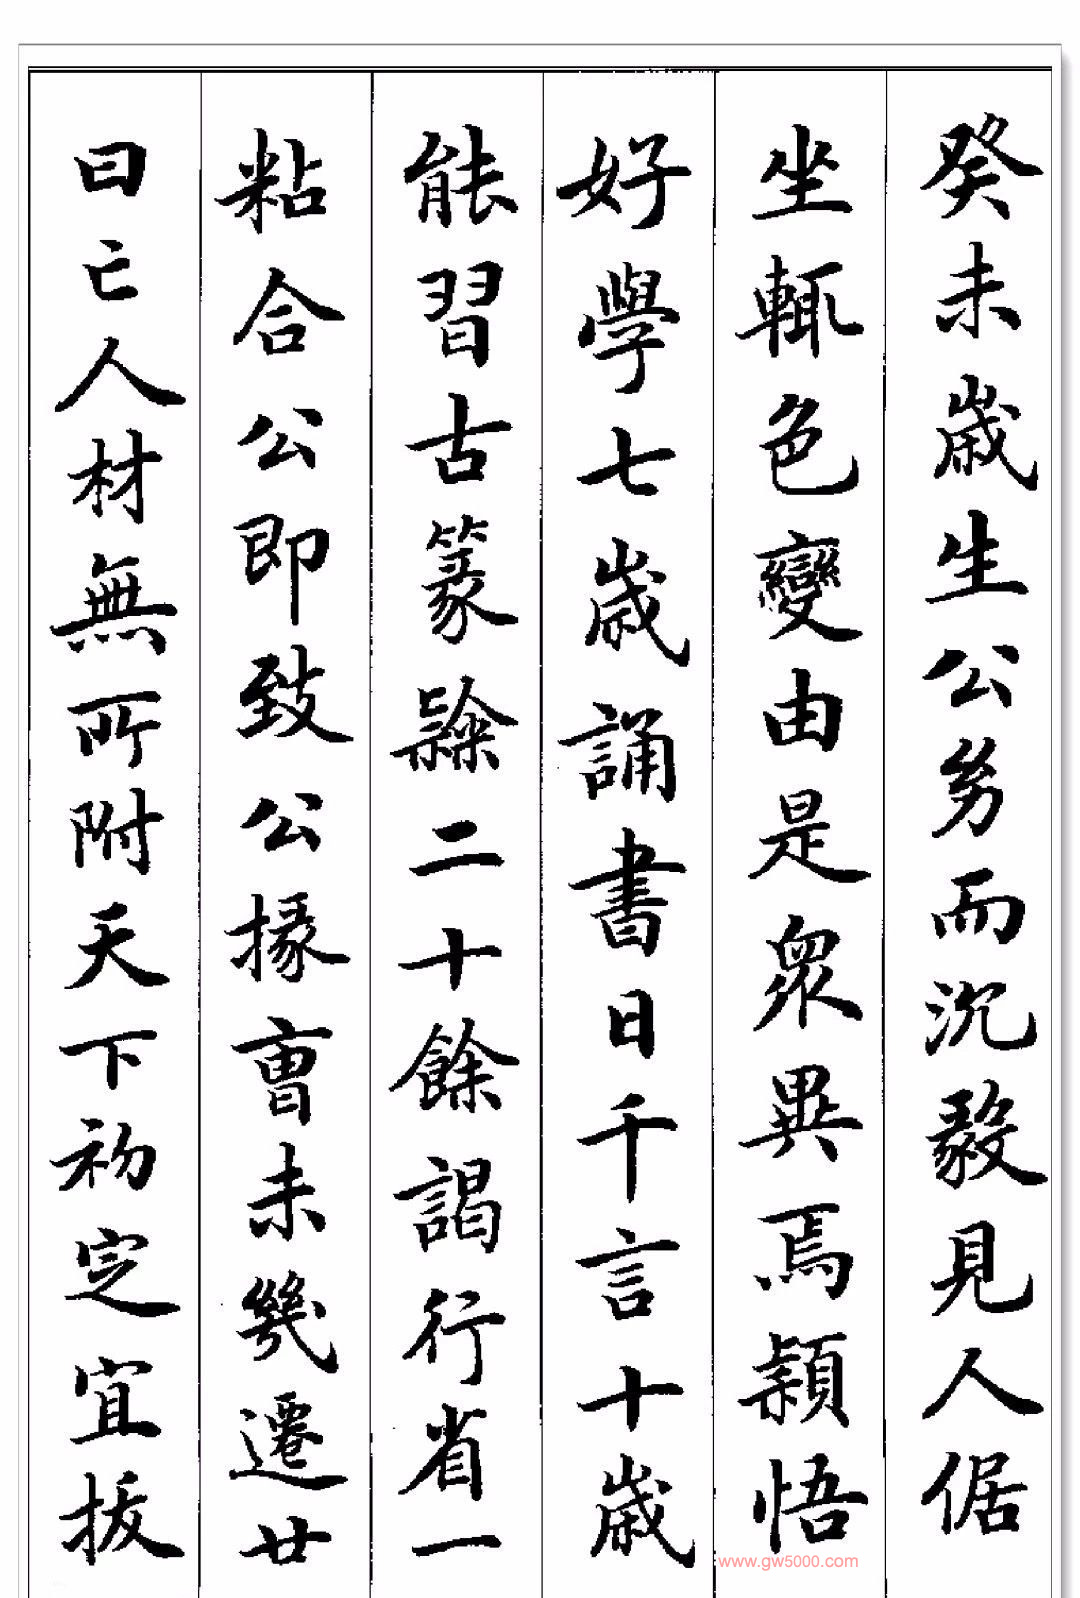 癸未歲生公㓜而沉毅見人倨
坐輒色變由是衆異焉穎悟
好學七歲誦書日千言十歲
能習古篆隸二十餘謁行省一
粘合公即致公掾曹未幾遷廿
曰亡人材無所附天下初定宜拔
www.gw5000.com